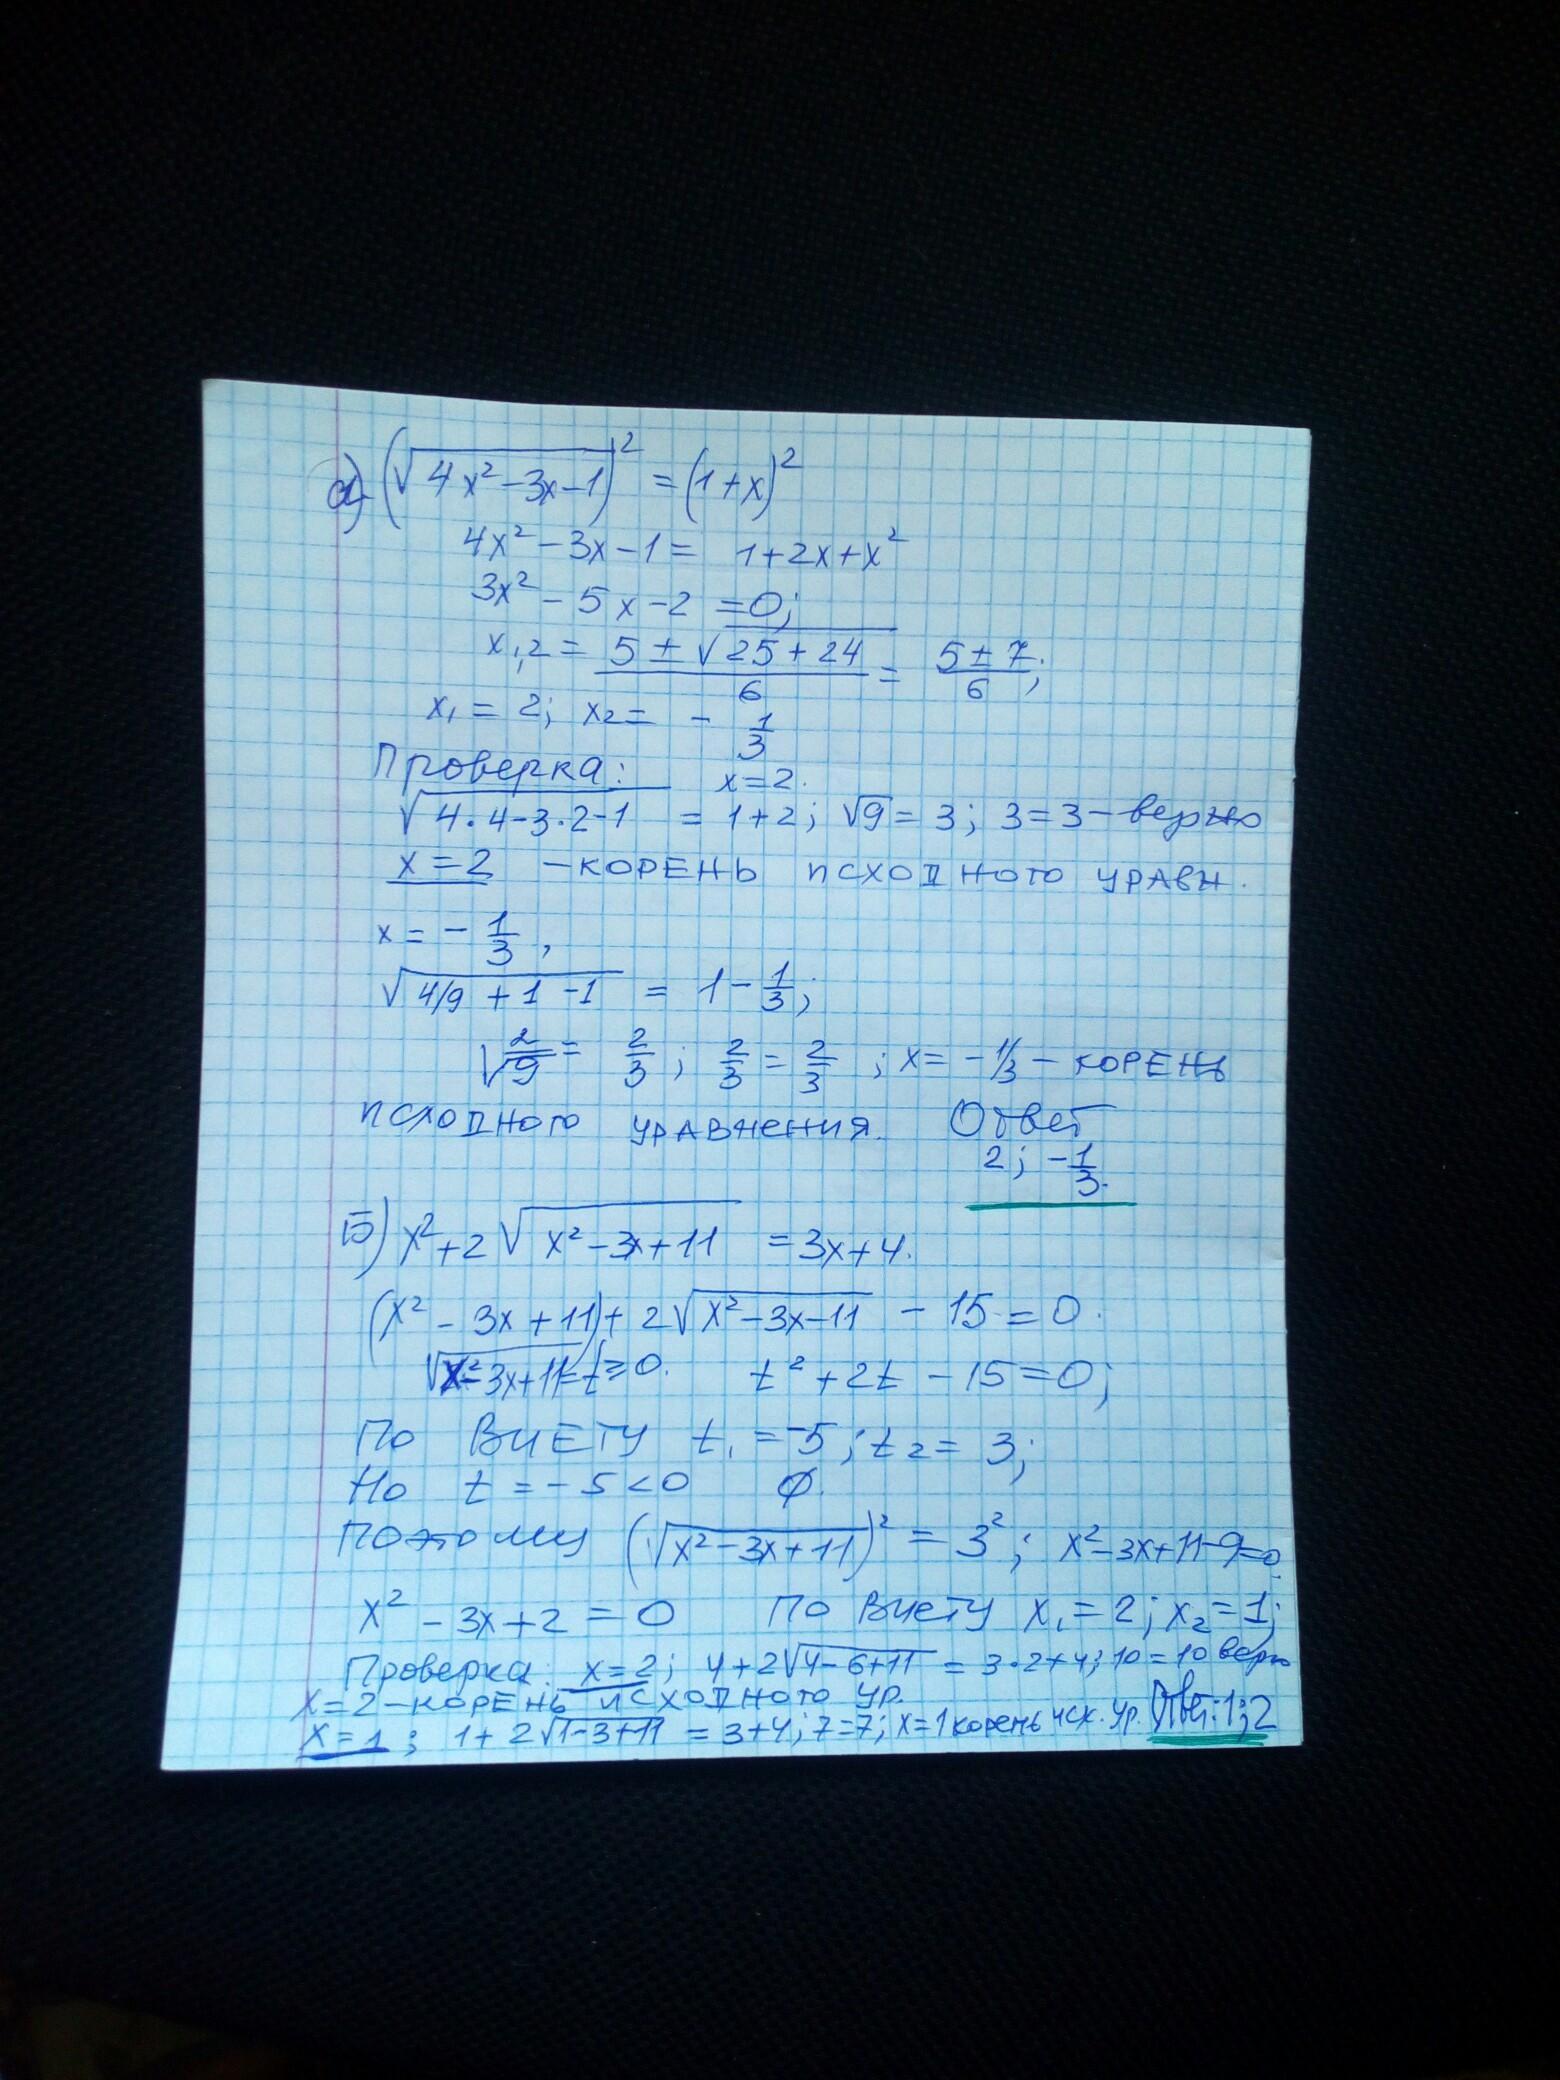 а) (√4x²-3x-1)² = (1+x)²
4x²-3x-1 = 1+2x+x²
3x²-5x-2 = 0;
x₁,₂ = 5±√25+24/6 = 5±7/6;
x₁ = 2; x₂ = -1/3
Проверка: x=2.
√4·4-3·2-1 = 1+2; √9 = 3; 3=3-верно
x=2 -корень исходного уравн.
x = -1/3,
√4/9+1-1 = 1-1/3;
2/√9 = 2/3; 2/3 = 2/3; x = -1/3 - корень
исходного уравнения. Ответ
2; -1/3.
Б) x²+2√x²-3x+11 = 3x+4.
(x²-3x+11)+2√x²-3x-11 - 15 = 0.
√x²-3x+11 = t≥0. t²+2t-15=0;
По Виету t₁ = -5; t₂ = 3;
Но t = -5<0 ∅.
Поэтому (√x²-3x+11)² = 3²; x²-3x+11-9=0.
x²-3x+2 = 0 По Виету x₁=2; x₂=1;
Проверка: x=2; 4+2√4-6+11 = 3·2+4; 10=10 верно
x=2-корень исходного ур.
x=1; 1+2√1-3+11 = 3+4; 7=7; x=1 корень исх. ур. Ответ: 1; 2